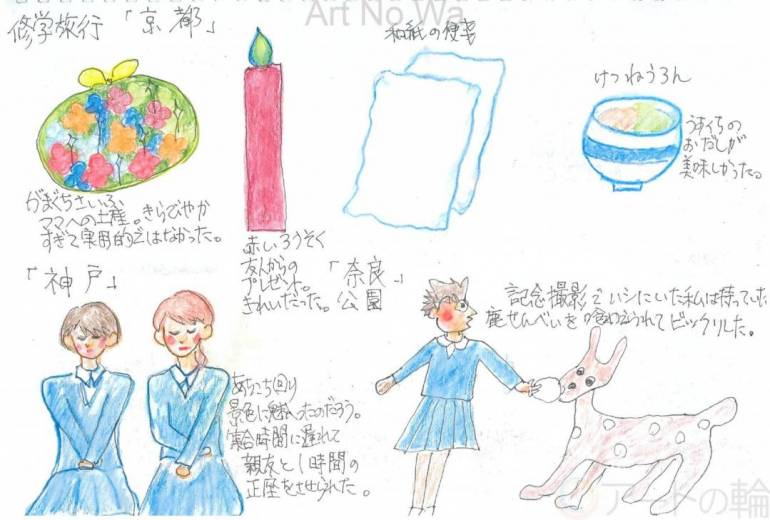 Art No Wa
修学旅行 「京都」
がまぐちさいふ
ママへの土産。きらびやか
すぎて実用的ではなかった。
赤いろうそく
友人からの
プレゼント。
きれいだった。
和紙の便箋
けつねうろん
うすくちの
おだしが
美味しかった。
「神戸」
あちこち回り
景色に魅入ったのだろう。
集合時間に遅れて
親友と1時間の
正座をさせられた。
「奈良」
公園
記念撮影でイシにいた私は持っていた
鹿せんべいを
ビックリした。
アートの輪